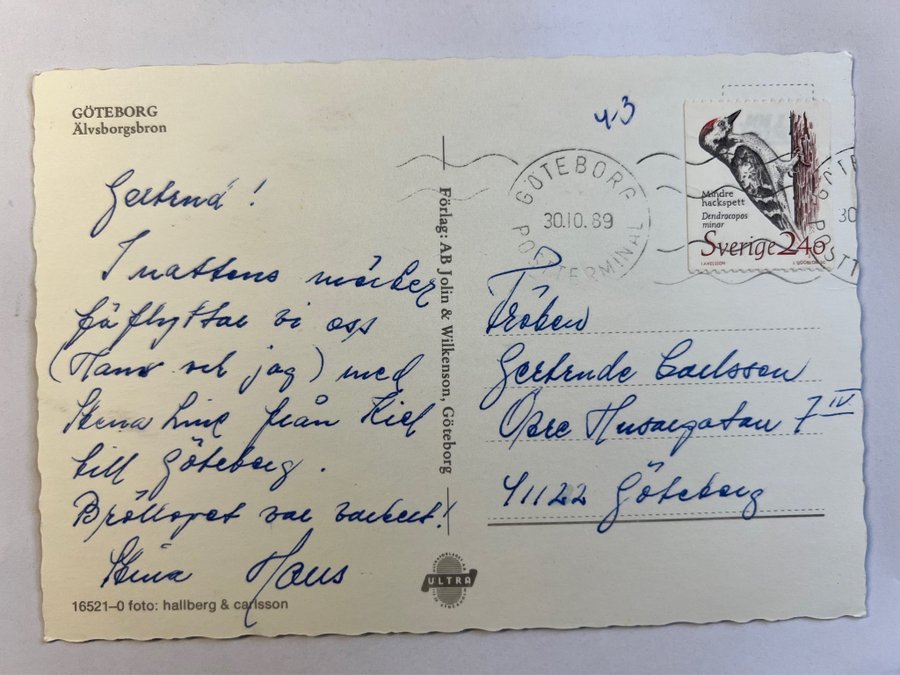 GÖTEBORG
Älvsborgsbron
4-3
GÖTEBORG
30.10.89
POSTTERMINAL
Mindre
hackspett
Dendrocopos
minor
Sverige 240
GÖTE
30
POSTT
Gertrud!
I nattens mörker
förflyttar vi oss
(Hans och jag) med
Stena Line från Kiel
till Göteborg.
Bröllopet var vackert!
Stina Hans
16521–0 foto: hallberg & carlsson
Förlag: AB Jolin & Wilkenson, Göteborg
ULTRA
Fröken
Gertrude Carlsson
Övre Husargatan 7 IV
41122 Göteborg